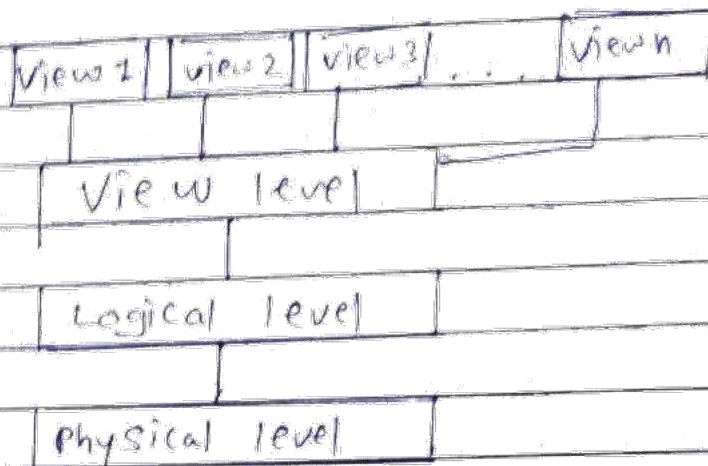 View 1 view 2 view 3 . . . . View n
View level
Logical level
Physical level